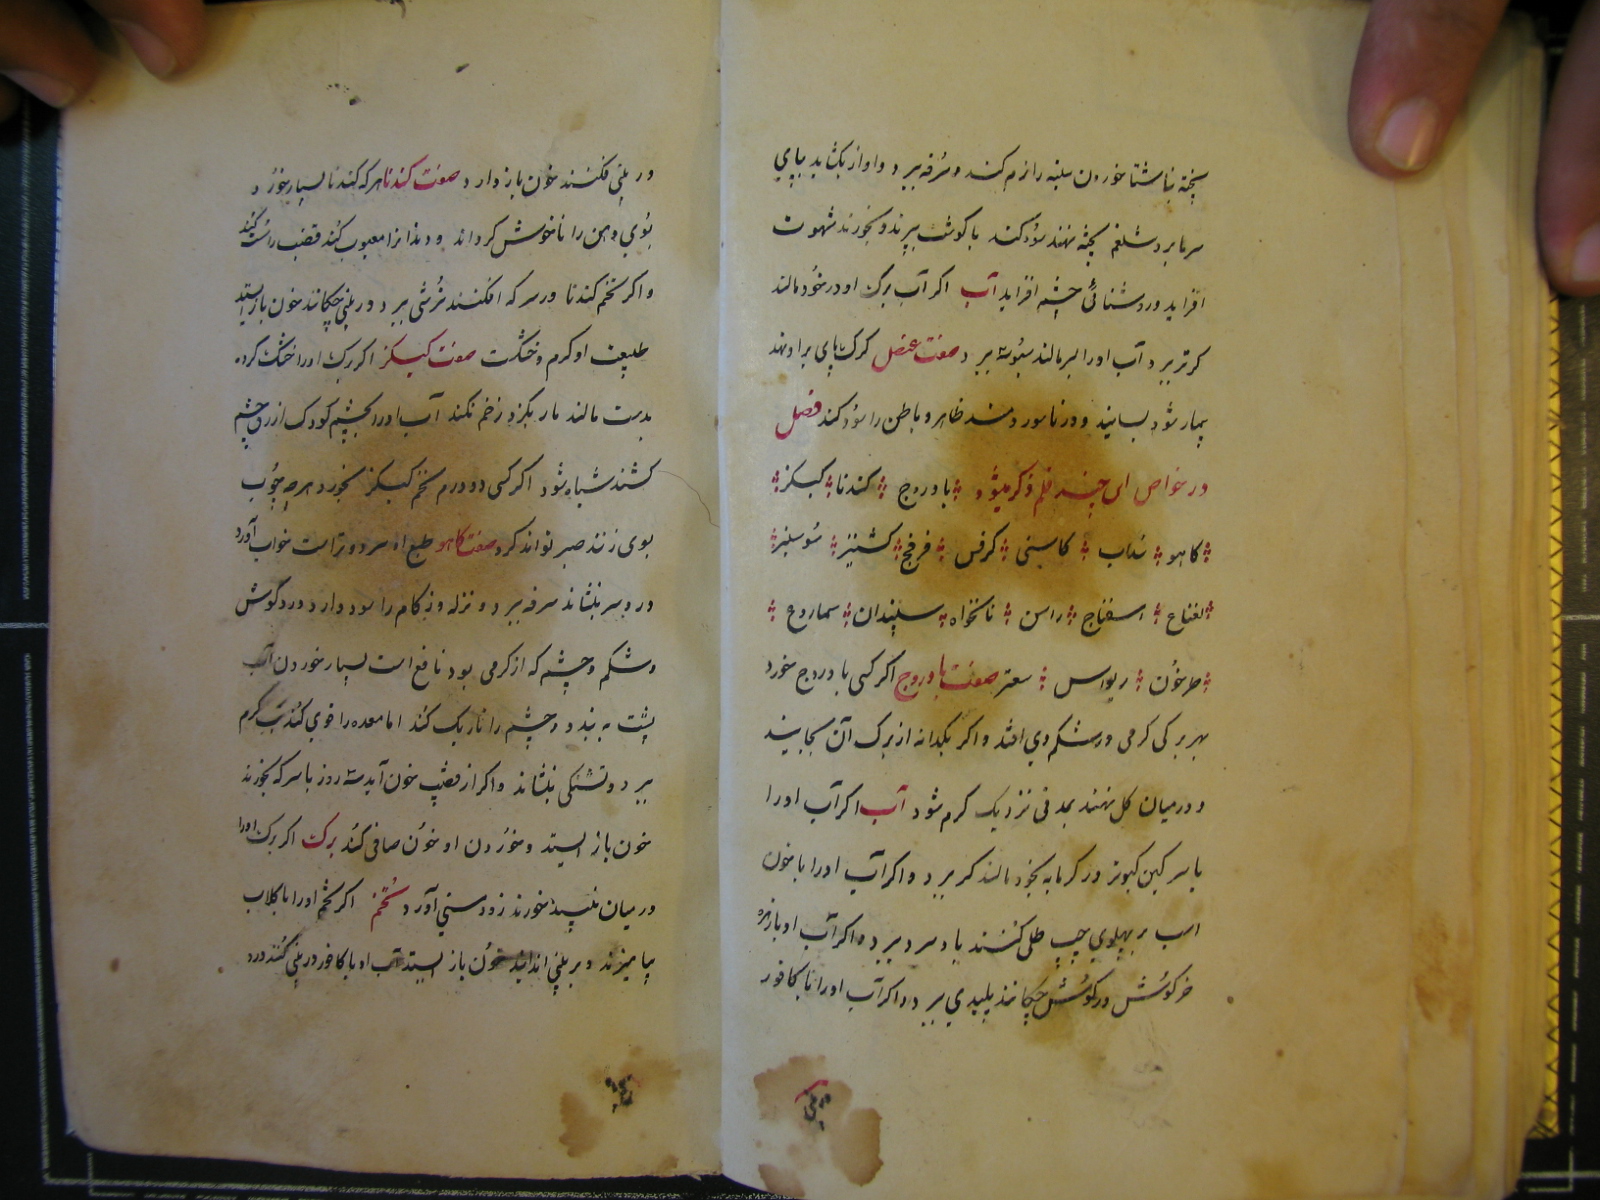 پخته بناشتا خوردن سینه را نرم کند و سرفه ببرد و اواز بکشاید بپای
سرما برد شلغم پخته نهند سود کند با کوشت بپزند و بخورند شهوت
افزاید و روشنائی چشم افزاید آب اکر آب برک او در خود مالند
کر تر ببرد آب اورا بسر مالند سبوسه ببرد صفت عنصل کرک پای براو نهد
بیمار شود بسایند و در ناسور دمند ظاهر و باطن را سود کند فصل
در خواص این چند قلم ذکر میشود بادروج کندنا کبیکز
کاهو سداب کاسنی کرفس فرفخ کشنیز شونیز
نعناع اسفناج راسن نانخواه سپندان سماروخ
طرخون ریواس سعتر صفت بادروج اکر کسی بادروج خورد
بهر برکی کرمی در شکم وی افتد و اکر یکدانه از برک آن بخایند
و درمیان کل نهند بمدتی نزدیک کرم شود آب اکر آب اورا
با سرکین کبوتر در کرمابه بخود مالند کر ببرد و اکر آب اورا با خون
اسب بر پهلوی چپ طلی کنند باد سرد ببرد و اکر آب او با زهره
خرکوش در کوش چکانند پلیدی ببرد و اکر آب اورا با کافور
در بینی
در بینی فکنند خون باز دارد صفت کندنا هرکه کندنا بسیار خورد
بوی دهن را ناخوش کرداند و دندانرا معیوب کند قضیب راست کند
و اکر تخم کندنا در سرکه افکنند ترشی ببرد و در بینی چکانند خون بازایستد
طبیعت او کرم و خشکست صفت کبیکز اکر برک اورا خشک کرده
بدست مالند مار بکزد زخم نکند آب اورا بچشم کودک ازرق چشم
کشند سیاه شود اکر کسی دو درم تخم کبیکز بخورد هرچه چوب
بوی زنند صبر تواند کرد صفت کاهو طبع او سرد و تر است خواب آورد
درد سر بنشاند سرفه ببرد و نزله و زکام را سود دارد درد کوش
و شکم و چشم که از کرمی بود نافع است بسیار خوردن آب
پشت ببندد و چشم را تاریک کند اما معده را قوی کند تب کرم
ببرد و تشنکی بنشاند و اکر از قضیب خون آید سه روز با سرکه بخورند
خون باز ایستد و خوردن او خون صافی کند برک اکر برک اورا
درمیان نبید خورند زود مستی آورد تخم اکر تخم اورا با کلاب
بیامیزند و بر بینی اندایند خون باز ایستد آب او با کافور در بینی کنند درد